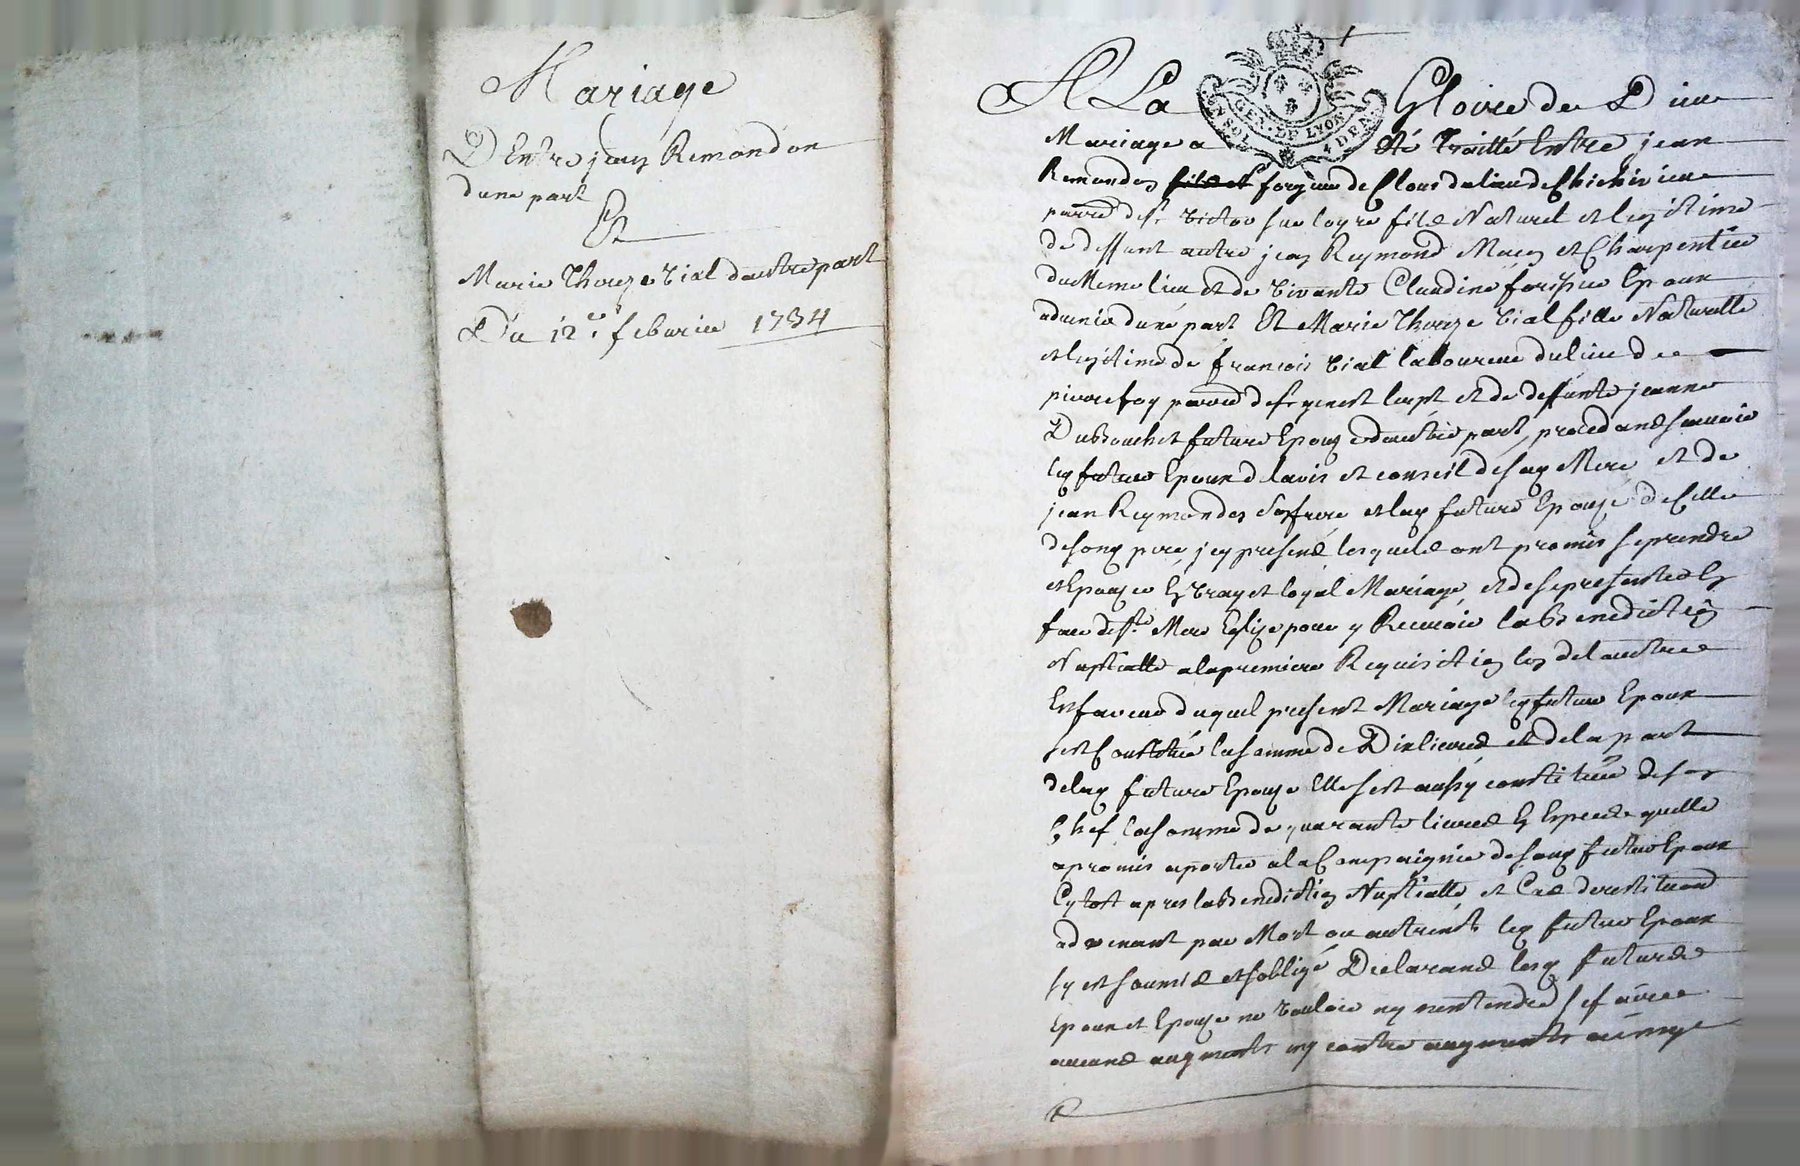 Mariage
D Entre jean Remondon
dune part
Et
Marie Thereze Vial dautre part
Du 12e. febvrier 1734
A La Gloire de Dieu
GEN. DE LYON
Mariage a Eté Traitté Entre jean
Remondon de Clous du lieu de
parr. de St. Victor sur loyre fils Naturel et legitime
de deffunt autre jean Reymond Maçon et Charpentier
du Meme lieu et de vivante Claudine Epoux
advenir dune part Et Marie Thereze Vial fille Naturelle
et legitime de françois Vial laboureur du lieu de
parr. de St genest lerpt et de deffunte jeanne
Dubouchet future Epouze dautre part, procedans sauoir
le futur Epoux de lavis et conseil de sa Mere et de
jean Reymondon son frere et la future Epouze de Celle
de son pere, icy presens lesquels ont promis se prendre
et Epouzer En vray et loyal Mariage, et de se presenter En
face de Ste. Mere Eglize pour y Recevoir la Benediction
Nuptialle a la premiere Requisition lun de lautre
En faveur duquel present Mariage le futur Epoux
sest Constitué la somme de Dix livres et de la part
de la future Epouze Elle sest aussy constituée de son
Chef la somme de quarante livres En Especes quelle
a promis aporter a la Compagnie de son futur Epoux
sytost apres la Benediction Nuptialle, et Cas de restitution
advenant par Mort ou autrement le futur Epoux
sy est soumis et sobligé Declarans les futurs
Epoux et Epouze ne vouloir ny nentendre se faire
aucuns augments ny contre augments